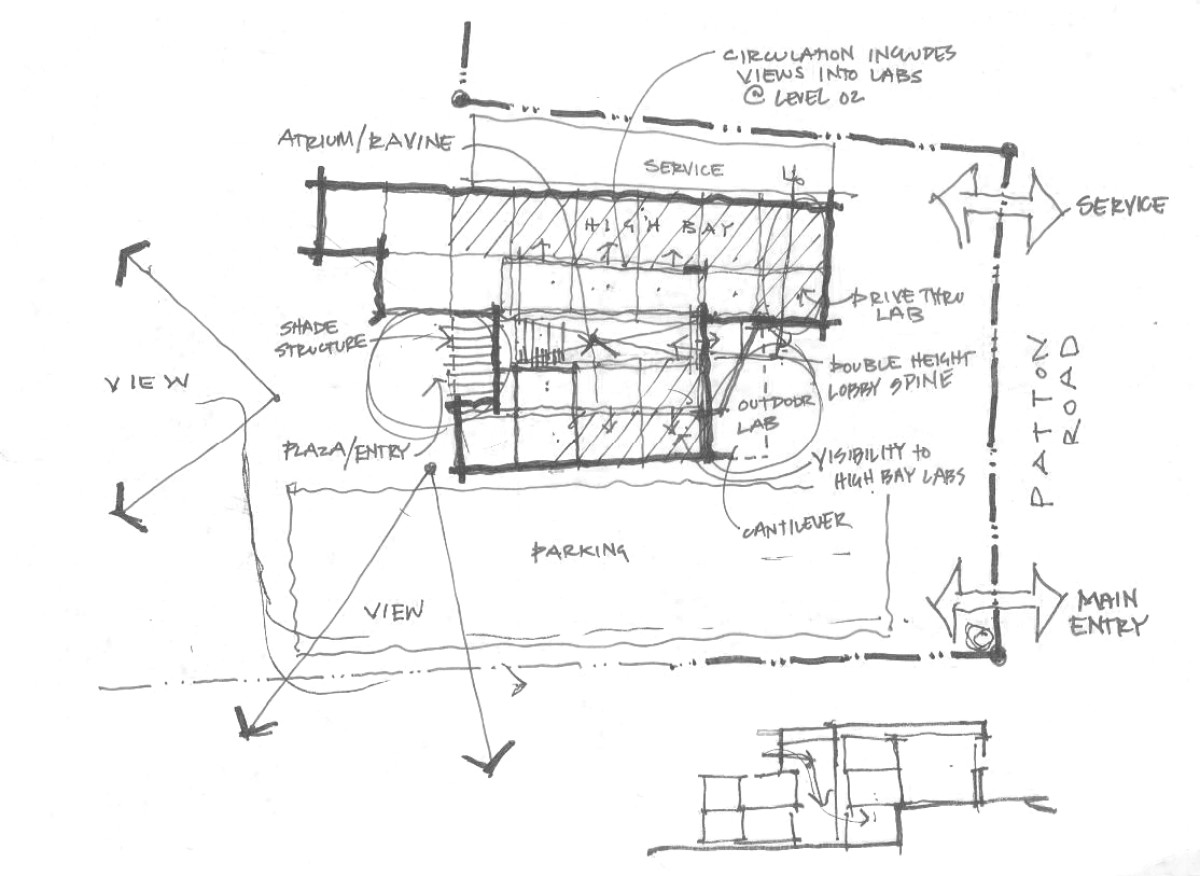 CIRCULATION INCLUDES
VIEWS INTO LABS
@ LEVEL 02
ATRIUM/RAVINE
SERVICE
SERVICE
HIGH BAY
DRIVE THRU
LAB
SHADE
STRUCTURE
VIEW
DOUBLE HEIGHT
LOBBY SPINE
OUTDOOR
LAB
PATTON
ROAD
PLAZA/ENTRY
VISIBILITY TO
HIGH BAY LABS
CANTILEVER
PARKING
VIEW
MAIN
ENTRY